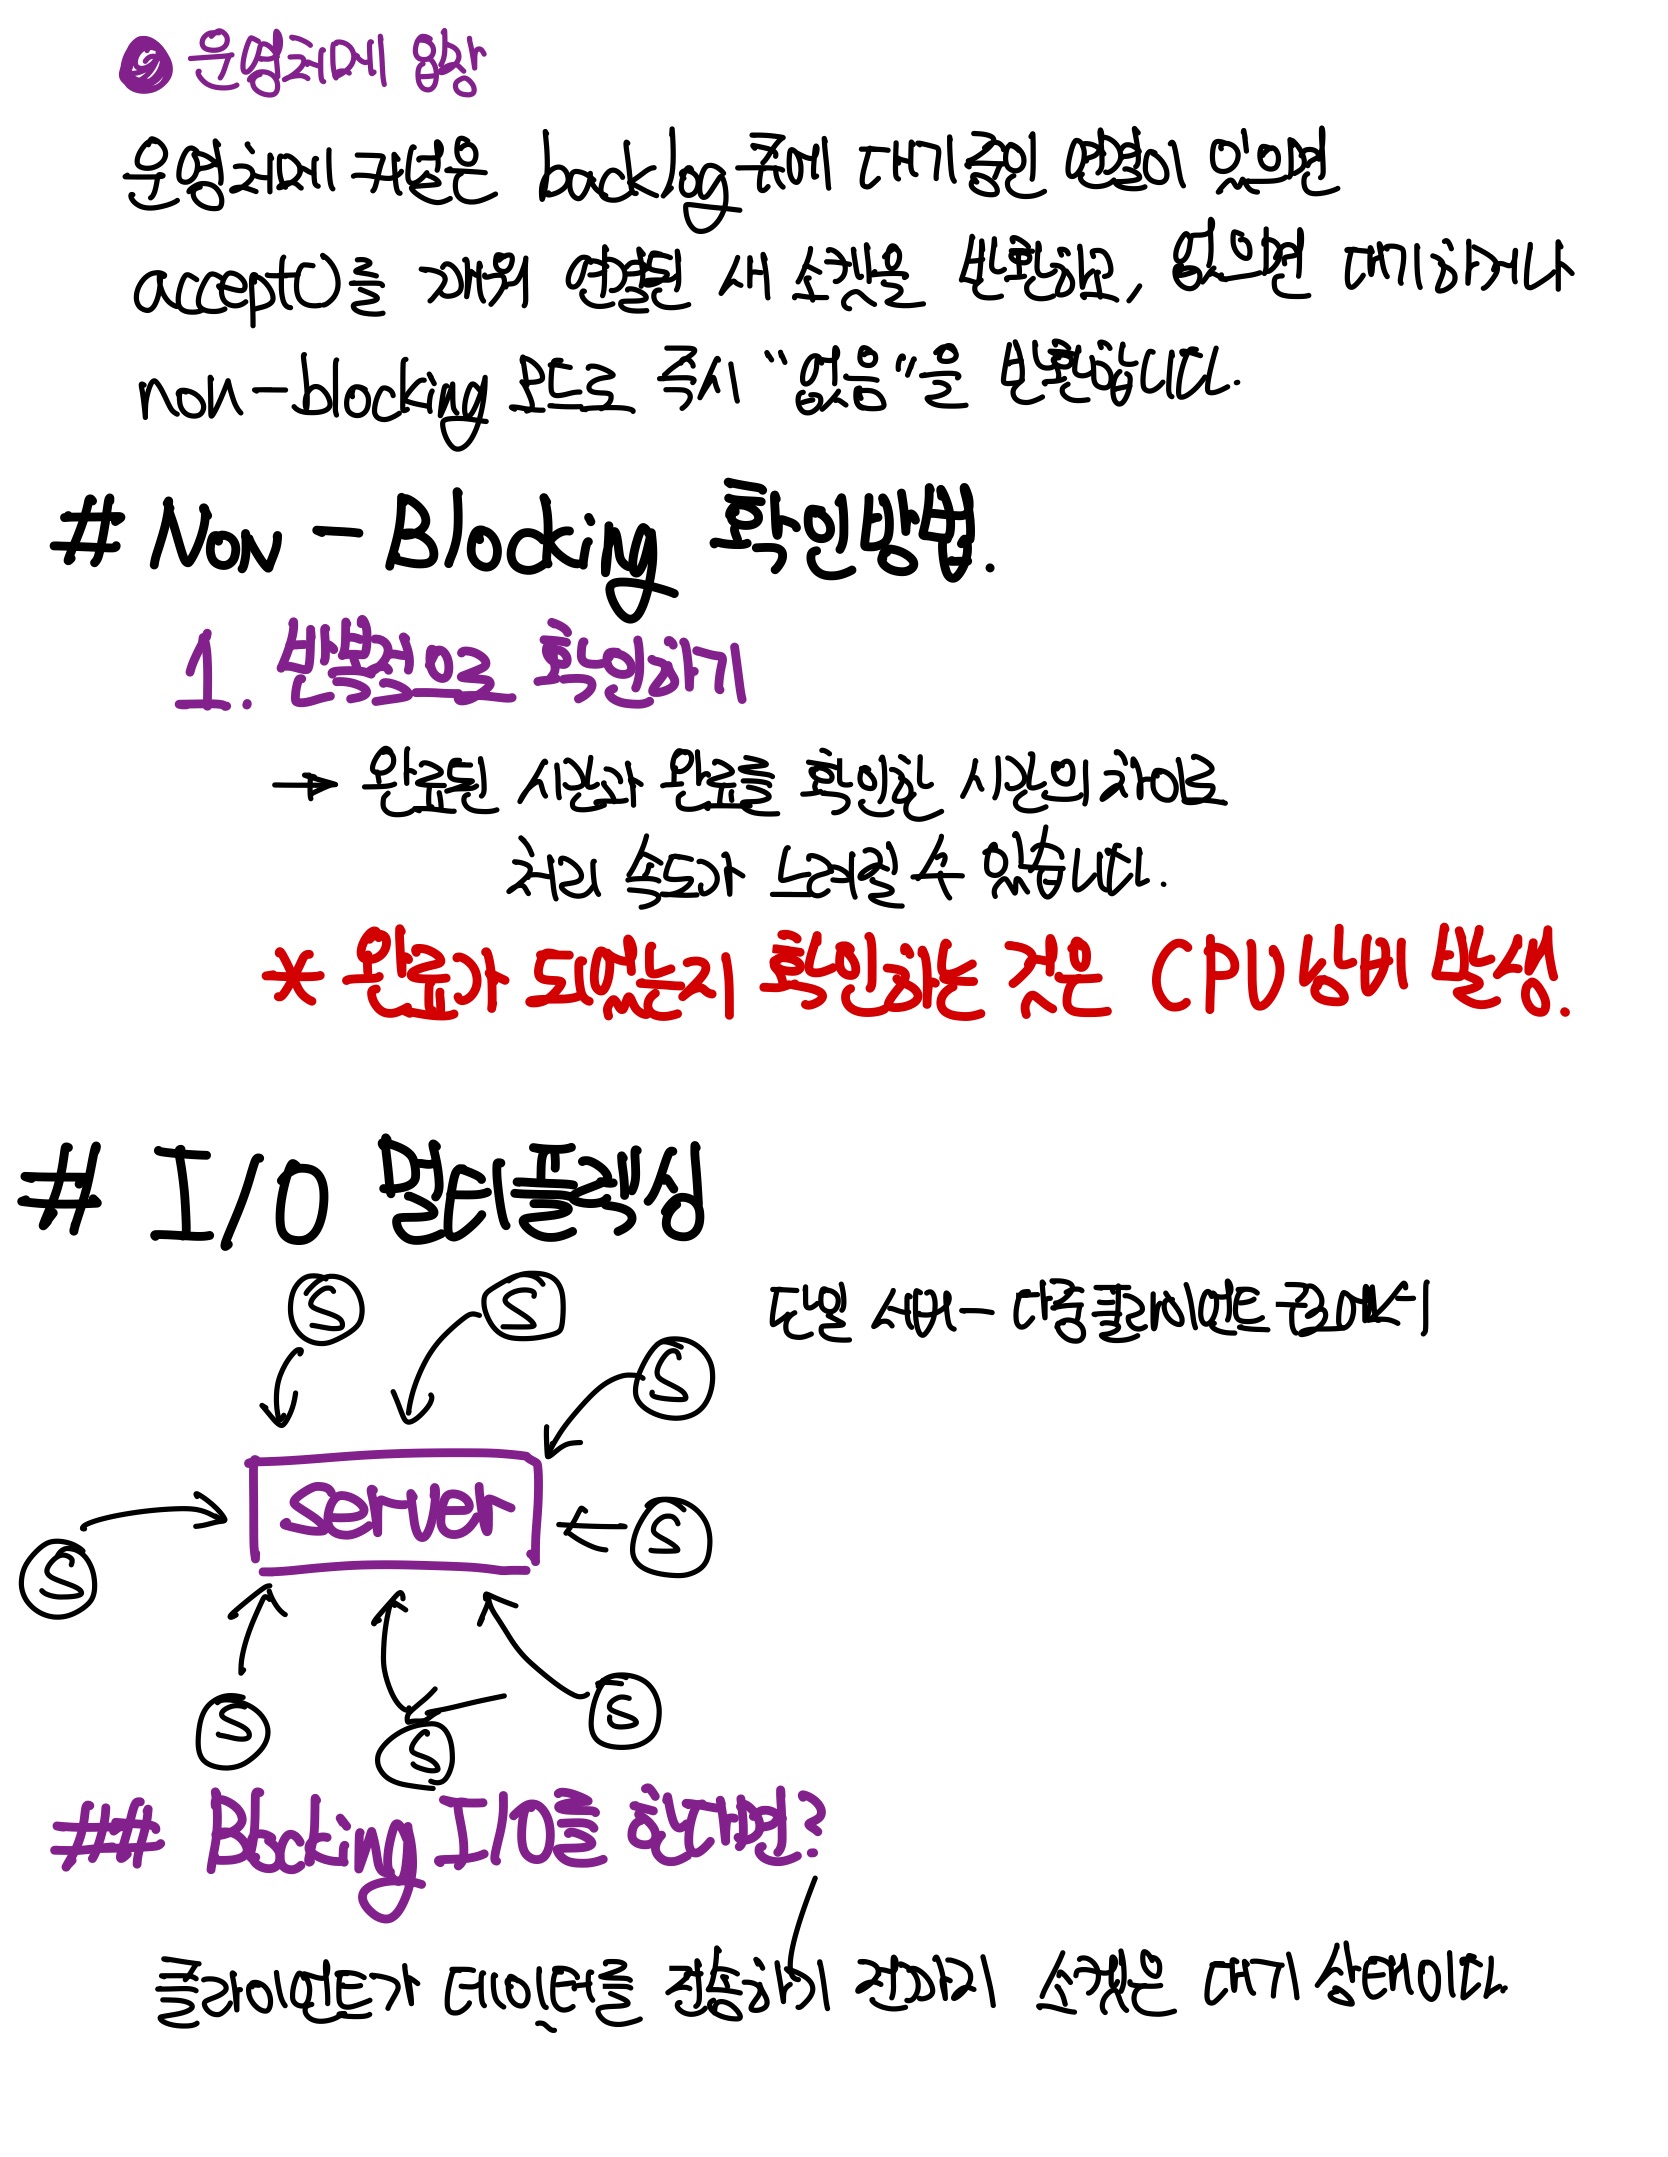 운영체제 입장
운영체제 커널은 backlog 큐에 대기 중인 연결이 있으면
accept()를 깨워 연결된 새 소켓을 반환하고, 없으면 대기하거나
non-blocking 모드로 즉시 "없음"을 반환합니다.
# Non-Blocking 확인방법.
1. 반복적으로 확인하기
→ 완료된 시간과 완료를 확인한 시간의 차이로
처리 속도가 느려질 수 있습니다.
* 완료가 되었는지 확인하는 것은 CPU 낭비 발생.
# I/O 멀티플렉싱
S
S
단일 서버 - 다중 클라이언트 구조에서
S
server
S
S
S
S
S
## Blocking I/O를 한다면?
클라이언트가 데이터를 전송하기 전까지 소켓은 대기 상태이다.